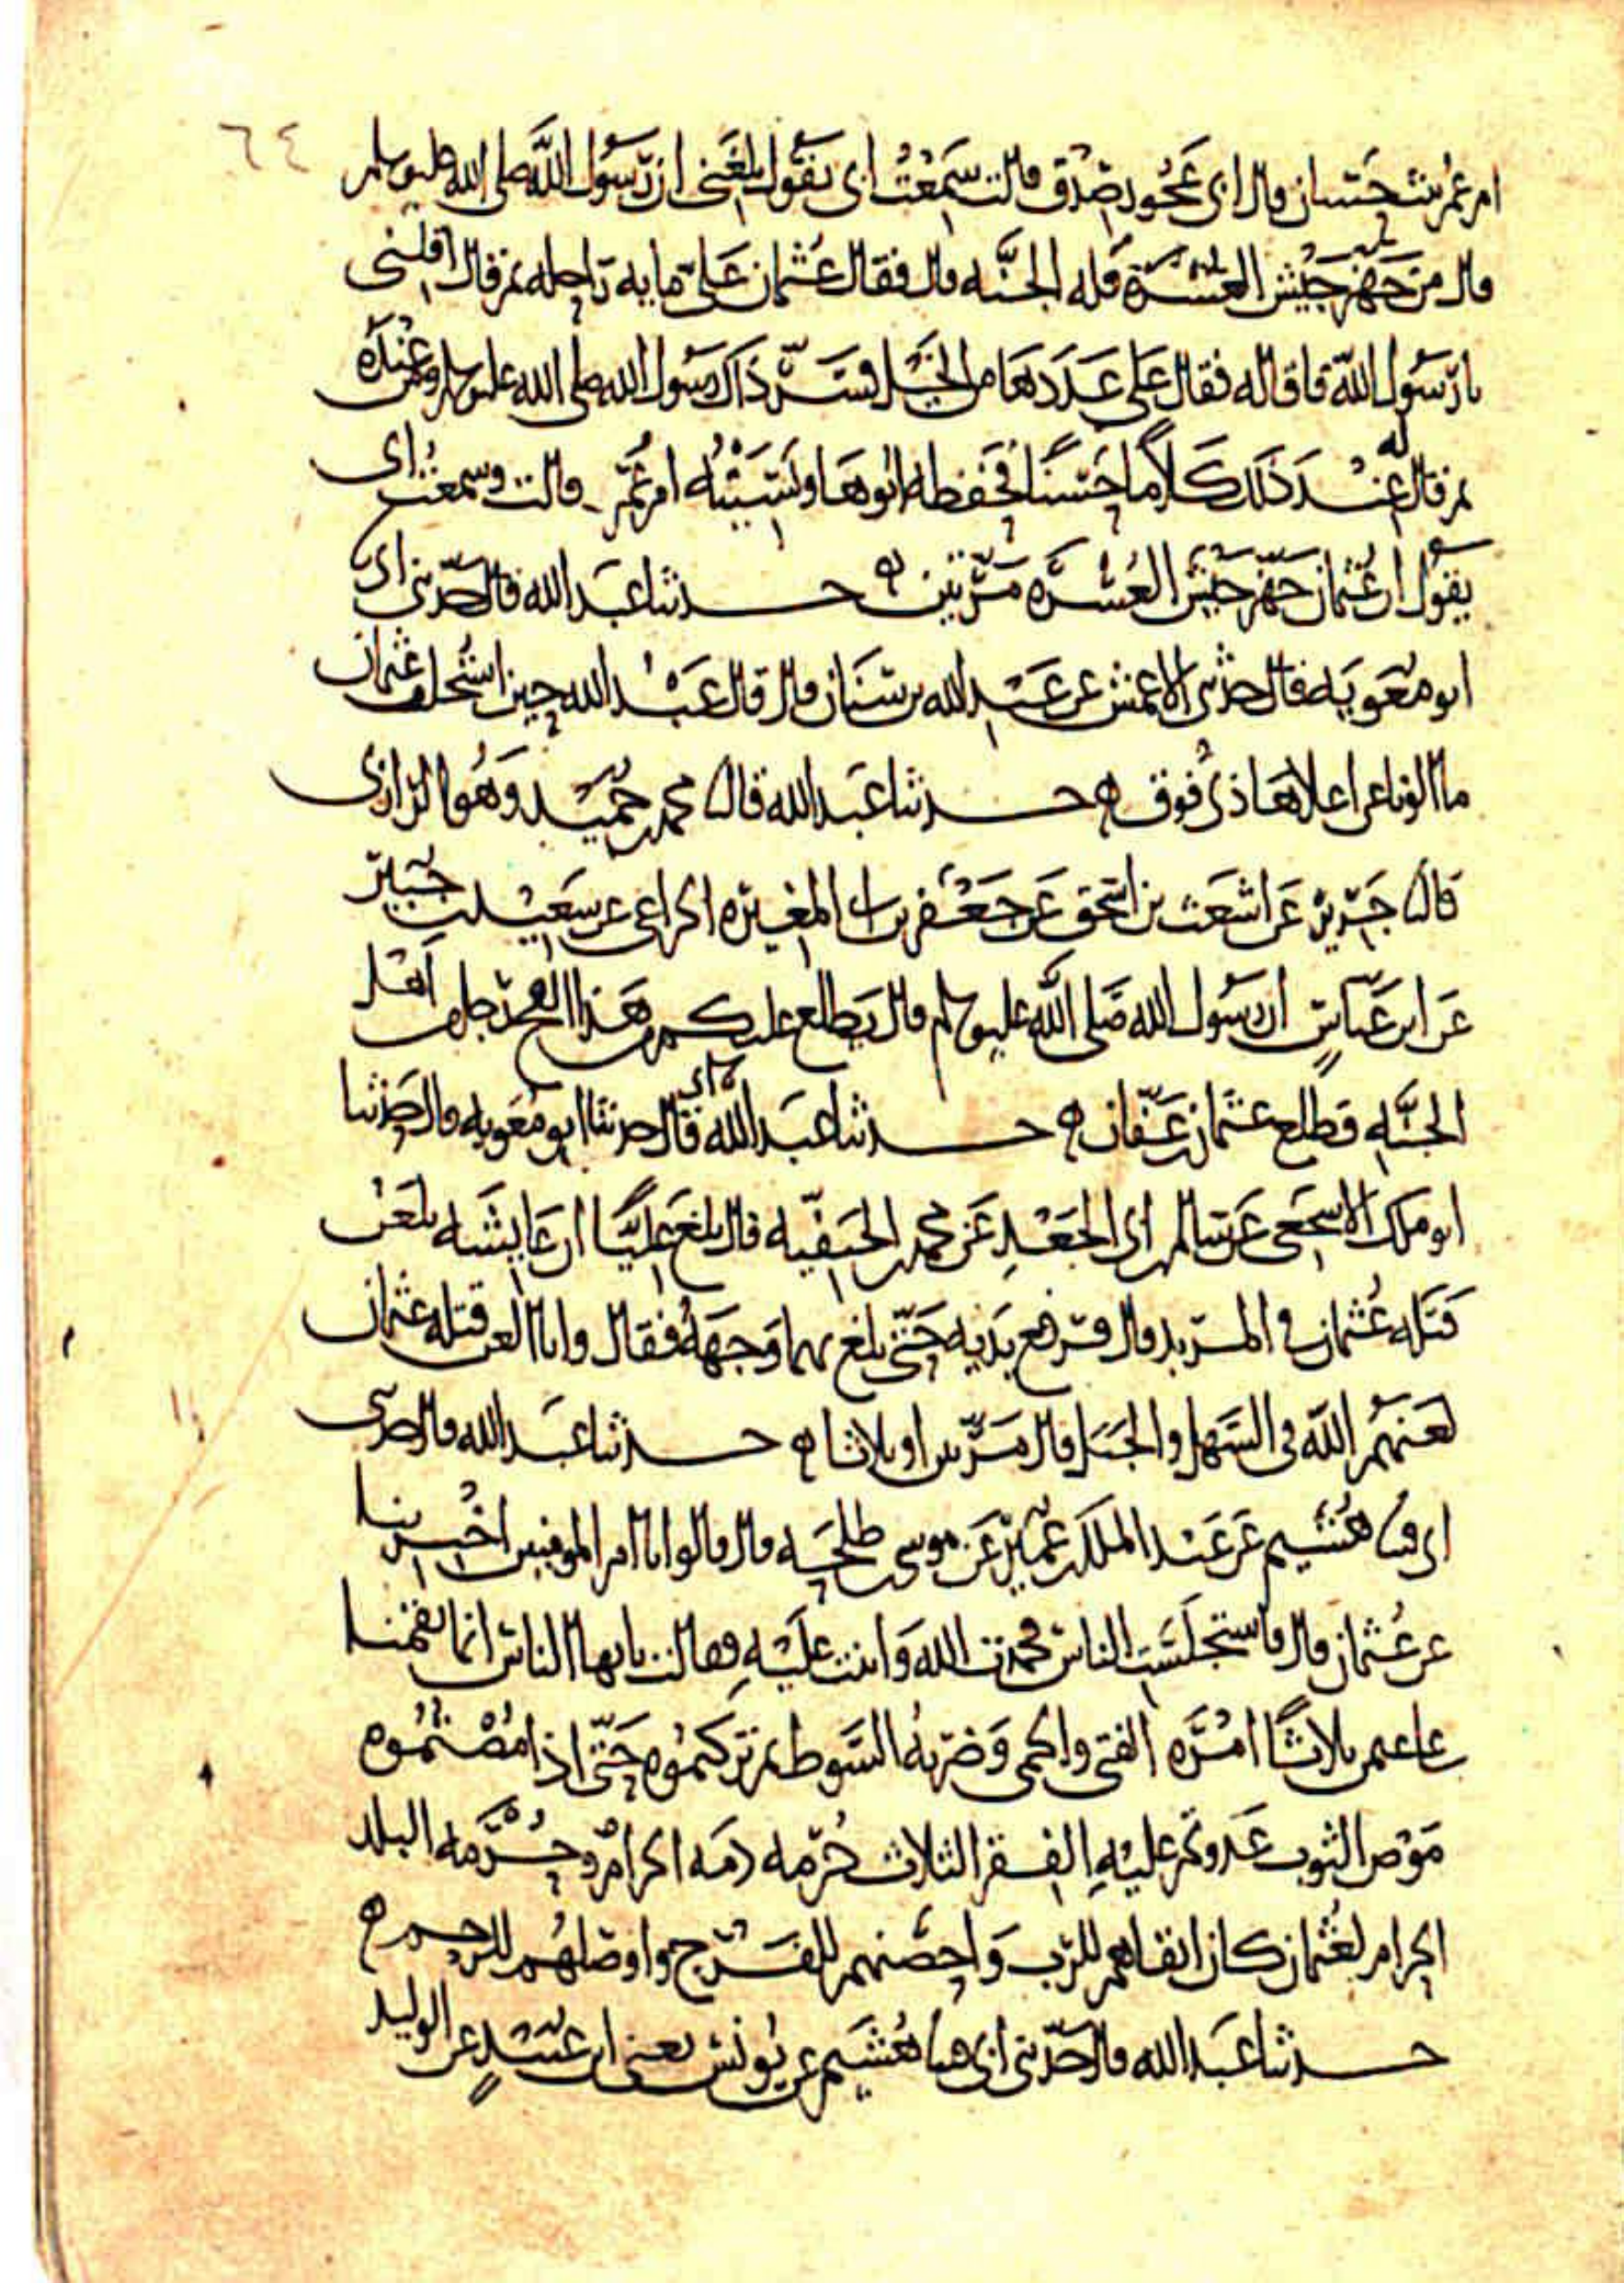 ٦٤
ام عمر بنت حسان قال ابي عجوز صدق قالت سمعت ابي يقول بلغني ان رسول الله صلى الله عليه وسلم
قال من جهز جيش العسرة فله الجنه قال فقال عثمان علي مايه راحله ثم قال اقلني
يا رسول الله فاقاله فقال علي عددها من الخيل فسر ذاك رسول الله صلى الله عليه وسلم ومن عنده
ثم قال له عند ذلك كلاما حسنا فحفظه ابوها ونسيته ام عمر قالت وسمعت ابي
يقول ان عثمان جهز جيش العسره مرتين ه حدثنا عبد الله قال حدثني ابي
ابو معويه قال حدثني الاعمش عن عبد الله بن سنان قال قال عبد الله حين استخلف عثمان
ما الونا عن اعلاها ذي فوق ه حدثنا عبد الله قال نا محمد بن حميد وهو الرازي
قال نا جرير عن اشعث بن اسحق عن جعفر بن ابي المغيره الخزاعي عن سعيد بن جبير
عن ابن عباس ان رسول الله صلى الله عليه وسلم قال يطلع عليكم من هذا الفج رجل من اهل
الجنه فطلع عثمان بن عفان ه حدثنا عبد الله قال حدثنا ابي ابو معويه قال حدثنا
ابو ملك الاشجعي عن سالم بن ابي الجعد عن محمد بن الحنفيه قال بلغ عليا ان عايشه تلعن
قتله عثمان في المربد قال فرفع يديه حتى بلغ بهما وجهه فقال وانا العن قتله عثمان
لعنهم الله في السهل والجبل قال مرتين او ثلاثا ه حدثنا عبد الله قال حدثني
ابي قثنا هشيم عن عبد الملك بن عمير عن موسى بن طلحه قال قالوا يا ام المومنين اخبرينا
عن عثمان قال فاستجلست الناس فحمدت الله واثنت عليه فقالت يايها الناس انما نقمنا
على عثمن ثلاثا امره الفتى والحمى وضربه السوط ثم تركتموه حتى اذا مصتموه
موص الثوب عدوتم عليه الفقر الثلاث حرمه دمه الحرام وحرمه البلد
الحرام لعثمان كان اتقاهم للرب واحصنهم للفرج واوصلهم للرحم ه
حدثنا عبد الله قال حدثني ابي قثنا هشيم عن يونس يعني ابن عبيد عن الوليد